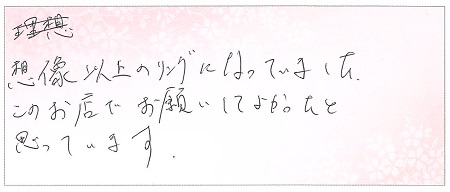 理想
想像以上のリングになっていました.
このお店でお願いしてよかったと
思っています.